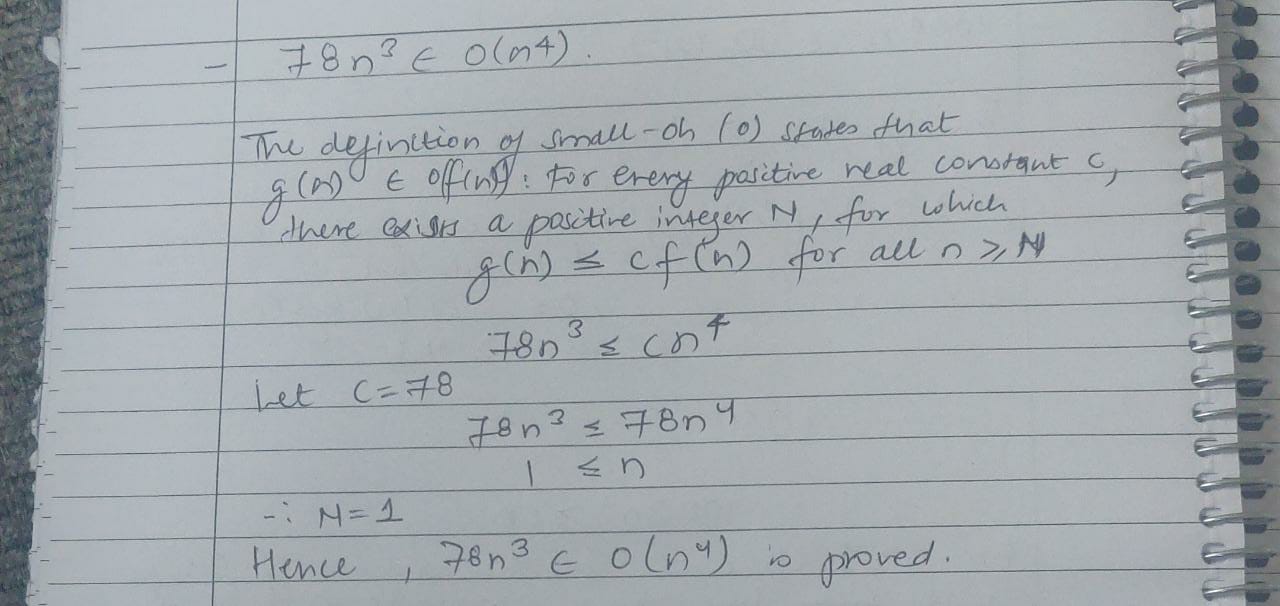 - 78n³ ∈ o(n⁴).
The definition of small-oh (o) states that
g(n) ∈ o(f(n)): For every positive real constant c,
there exists a positive integer N, for which
g(n) ≤ cf(n) for all n ≥ N
78n³ ≤ cn⁴
Let C=78
78n³ ≤ 78n⁴
1 ≤ n
∴ N=1
Hence, 78n³ ∈ o(n⁴) is proved.